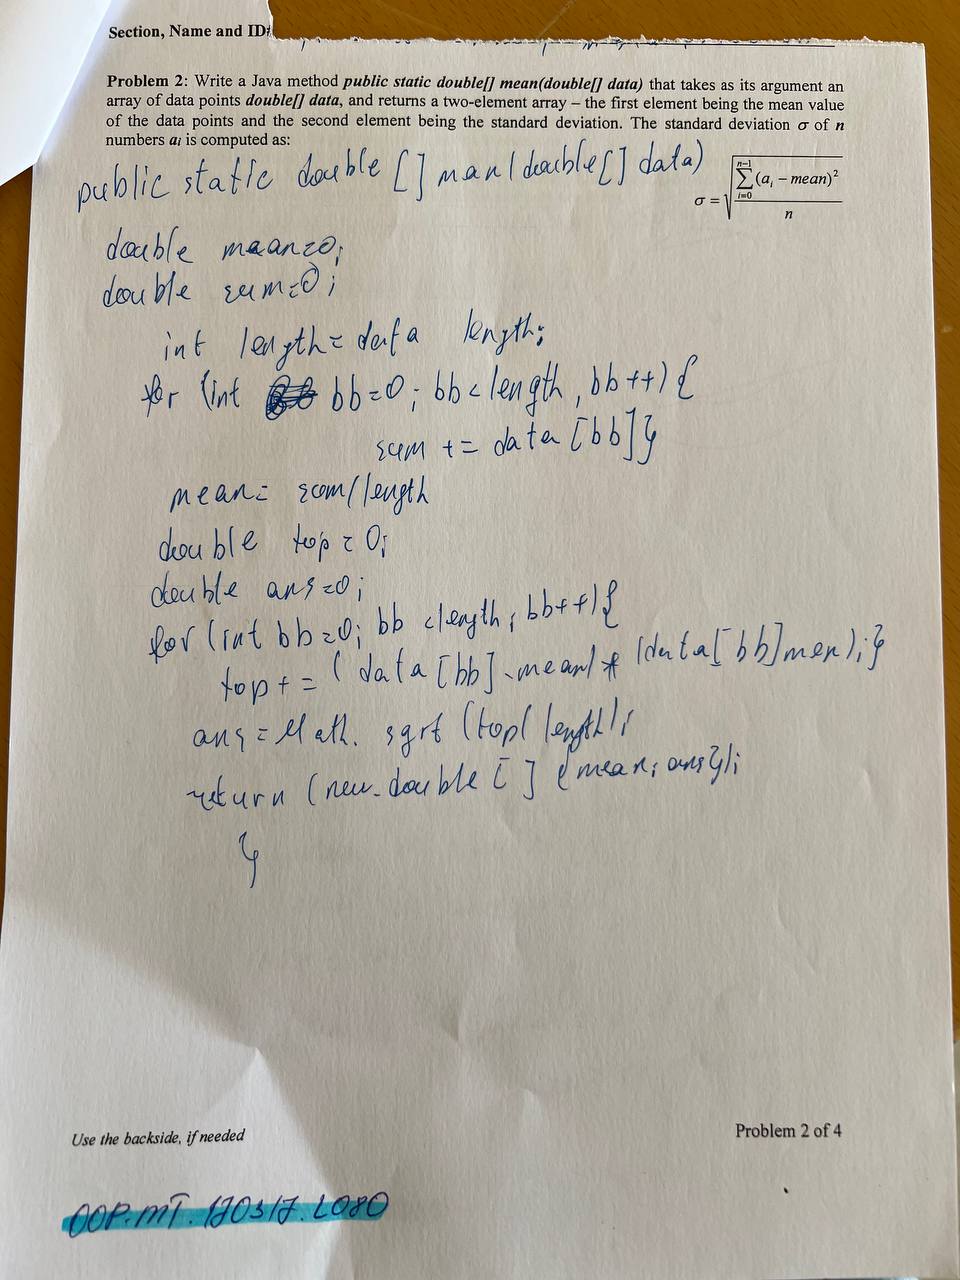 Section, Name and ID
Problem 2: Write a Java method public static double[] mean(double[] data) that takes as its argument an
array of data points double[] data, and returns a two-element array – the first element being the mean value
of the data points and the second element being the standard deviation. The standard deviation σ of n
numbers aᵢ is computed as:
σ = √(∑(aᵢ – mean)² / n)
n–1
i=0
public static double [] man(double[] data)
double mean=0;
double sum=0;
int length= data length;
for (int bb=0; bb<length, bb++) {
sum += data [bb]}
mean= sum/length
double top = 0;
double ans=0;
for (int bb=0; bb <length; bb++){
top += (data [bb]-mean) * (data[bb]men);}
ans = Math. sqrt (top/ length);
return (new double [] {mean; ans});
}
Use the backside, if needed
Problem 2 of 4
OOP.MT.170317.L080